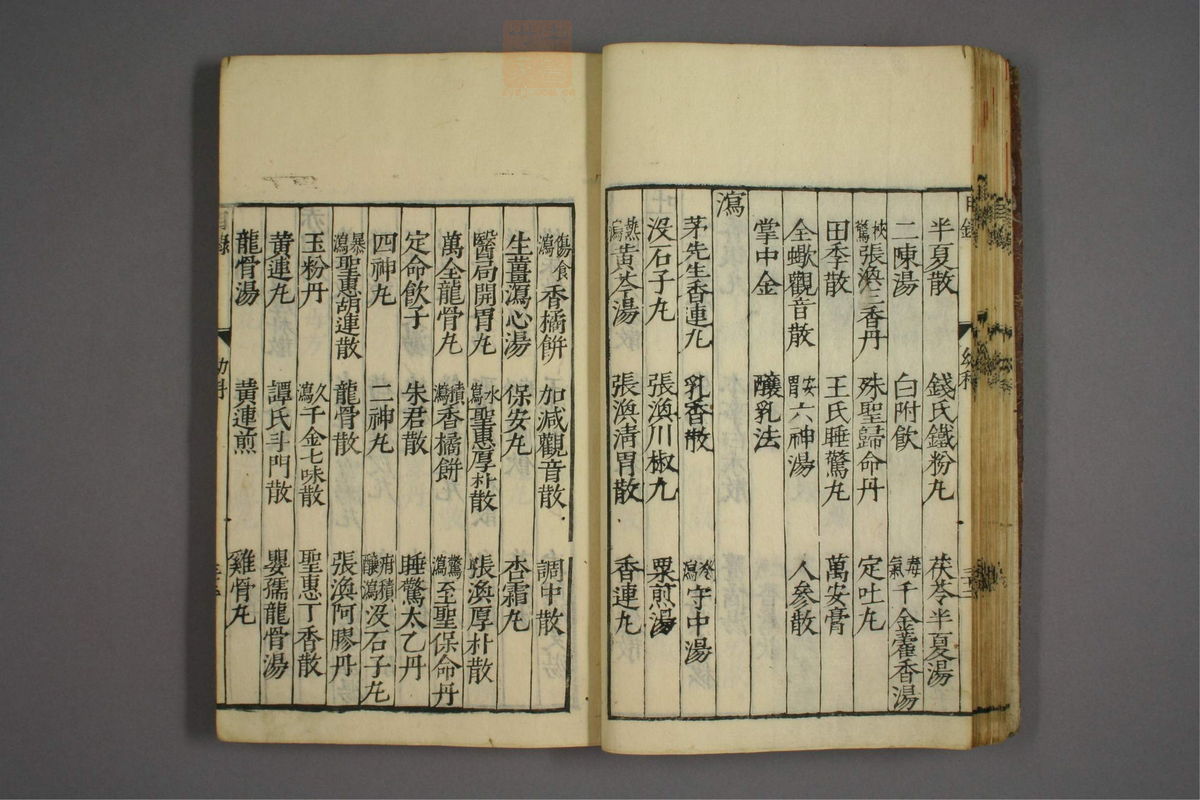 半夏散 錢氏鐵粉丸 茯苓半夏湯
二陳湯 白附飲 毒氣千金藿香湯
挾驚張渙三香丹 殊聖歸命丹 定吐丸
田季散 王氏睡驚丸 萬安膏
全蠍觀音散 安胃六神湯 人參散
掌中金 釀乳法
瀉
茅先生香連丸 乳香散 冷瀉守中湯
没石子丸 張渙川椒丸 粟煎湯
熱瀉黄芩湯 張渙淸胃散 香連丸
傷食瀉香橘餅 加減觀音散 調中散
生薑瀉心湯 保安丸 杏霜丸
醫局開胃丸 水瀉聖惠厚朴散 張渙厚朴散
萬全龍骨丸 積瀉香橘餅 驚瀉至聖保命丹
定命飮子 朱君散 睡驚太乙丹
四神丸 二神丸 疳積釀瀉没石子丸
暴瀉聖惠胡連散 龍骨散 張渙阿膠丹
玉粉丹 久瀉千金七味散 聖惠丁香散
黄連丸 譚氏斗門散 嬰孺龍骨湯
龍骨湯 黄連煎 雞骨丸
目錄 幼科